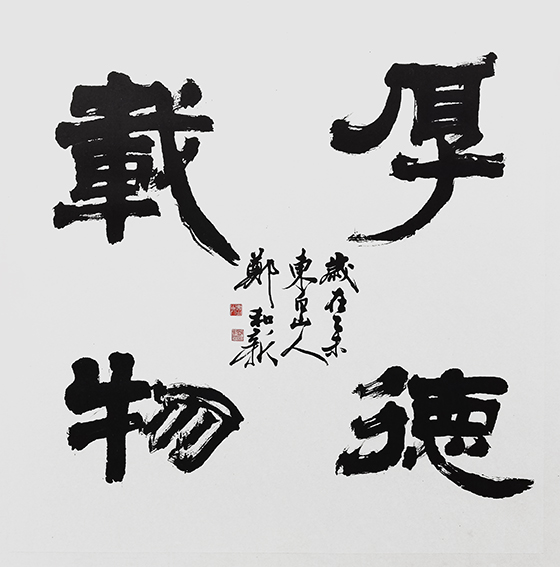 厚德
載物
歲在乙未
東白山人
鄭和新